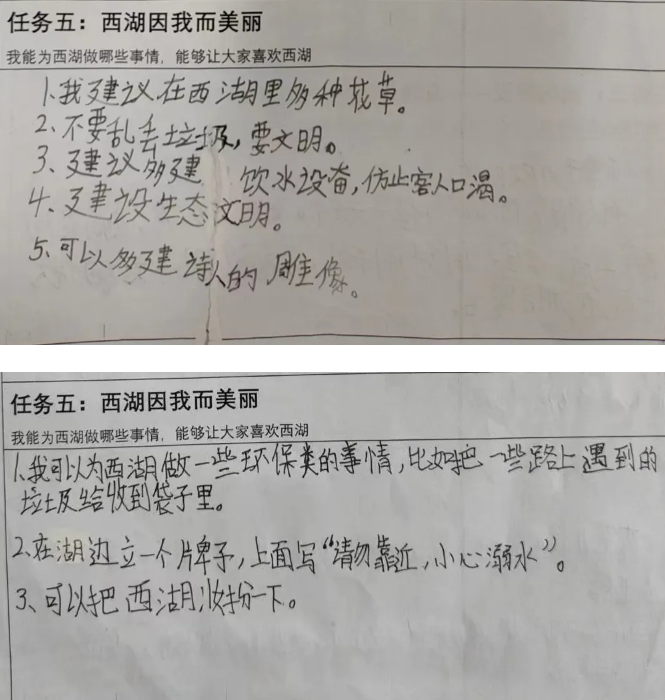 任务五：西湖因我而美丽
我能为西湖做哪些事情，能够让大家喜欢西湖
1.我建议在西湖里多种花草。
2.不要乱丢垃圾，要文明。
3、建议多建 饮水设奋，仿止客人口渴。
4、建设生态文明。
5、可以多建诗人的雕像。
任务五：西湖因我而美丽
我能为西湖做哪些事情，能够让大家喜欢西湖
1、我可以为西湖做一些环保类的事情，比如把一些路上遇到的
垃圾给收到袋子里。
2、在湖边立一个牌子，上面写“请勿靠近，小心溺水”。
3、可以把西湖妆扮一下。